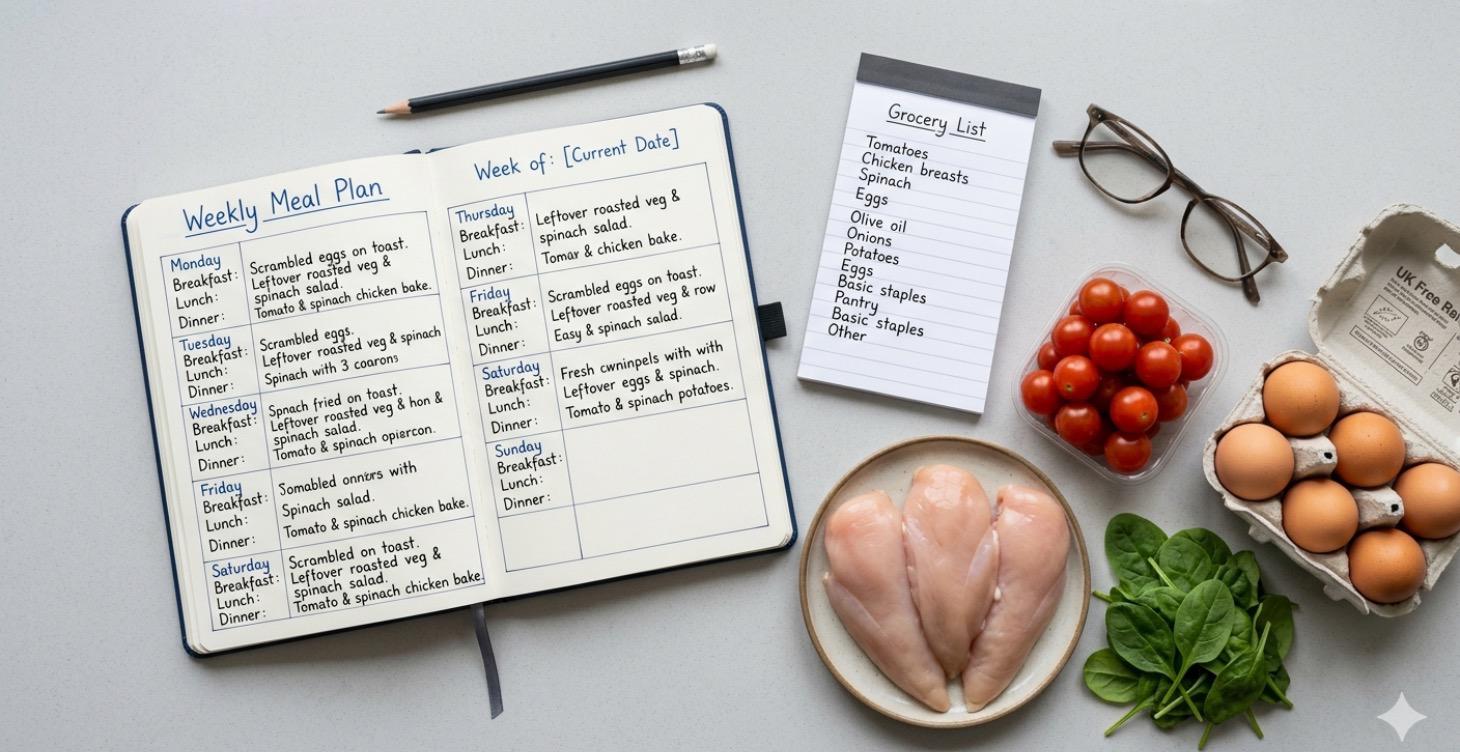 Weekly Meal Plan
Monday
Breakfast:
Lunch:
Dinner:
Scrambled eggs on toast.
Leftover roasted veg &
spinach salad.
Tomato & spinach chicken bake.
Tuesday
Breakfast:
Lunch:
Dinner:
Scrambled eggs.
Leftover roasted veg & spinach
Spinach with 3 coarons
Wednesday
Breakfast:
Lunch:
Dinner:
Spnach fried on toast.
Leftover roasted veg & hon &
spinach salad.
Tomato & spinach opiercon.
Friday
Breakfast:
Lunch:
Dinner:
Somabled onners with
Spinach salad.
Tomato & spinach chicken bake.
Saturday
Breakfast:
Lunch:
Dinner:
Scrambled on toast.
Leftover roasted veg &
spinach salad.
Tomato & spinach chicken bake
Week of: [Current Date]
Thursday
Breakfast:
Lunch:
Dinner:
Leftover roasted veg &
spinach salad.
Tomar & chicken bake.
Friday
Breakfast:
Lunch:
Dinner:
Scrambled eggs on toast.
Leftover roasted veg & row
Easy & spinach salad.
Saturday
Breakfast:
Lunch:
Dinner:
Fresh cwninpels with with
Leftover eggs & spinach.
Tomato & spinach potatoes.
Sunday
Breakfast:
Lunch:
Dinner:
Grocery List
Tomatoes
Chicken breasts
Spinach
Eggs
Olive oil
Onions
Potatoes
Eggs
Basic staples
Pantry
Basic staples
Other
UK Free